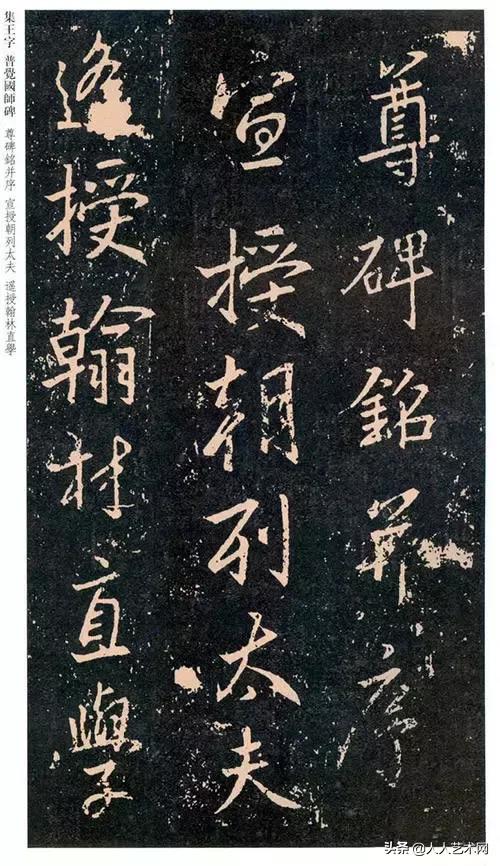 尊碑銘并序
宣授朝列太夫
遥授翰林直學
集王字 普覺國師碑 尊碑銘并序 宣授朝列太夫 遥授翰林直學
头条 @人人艺术网